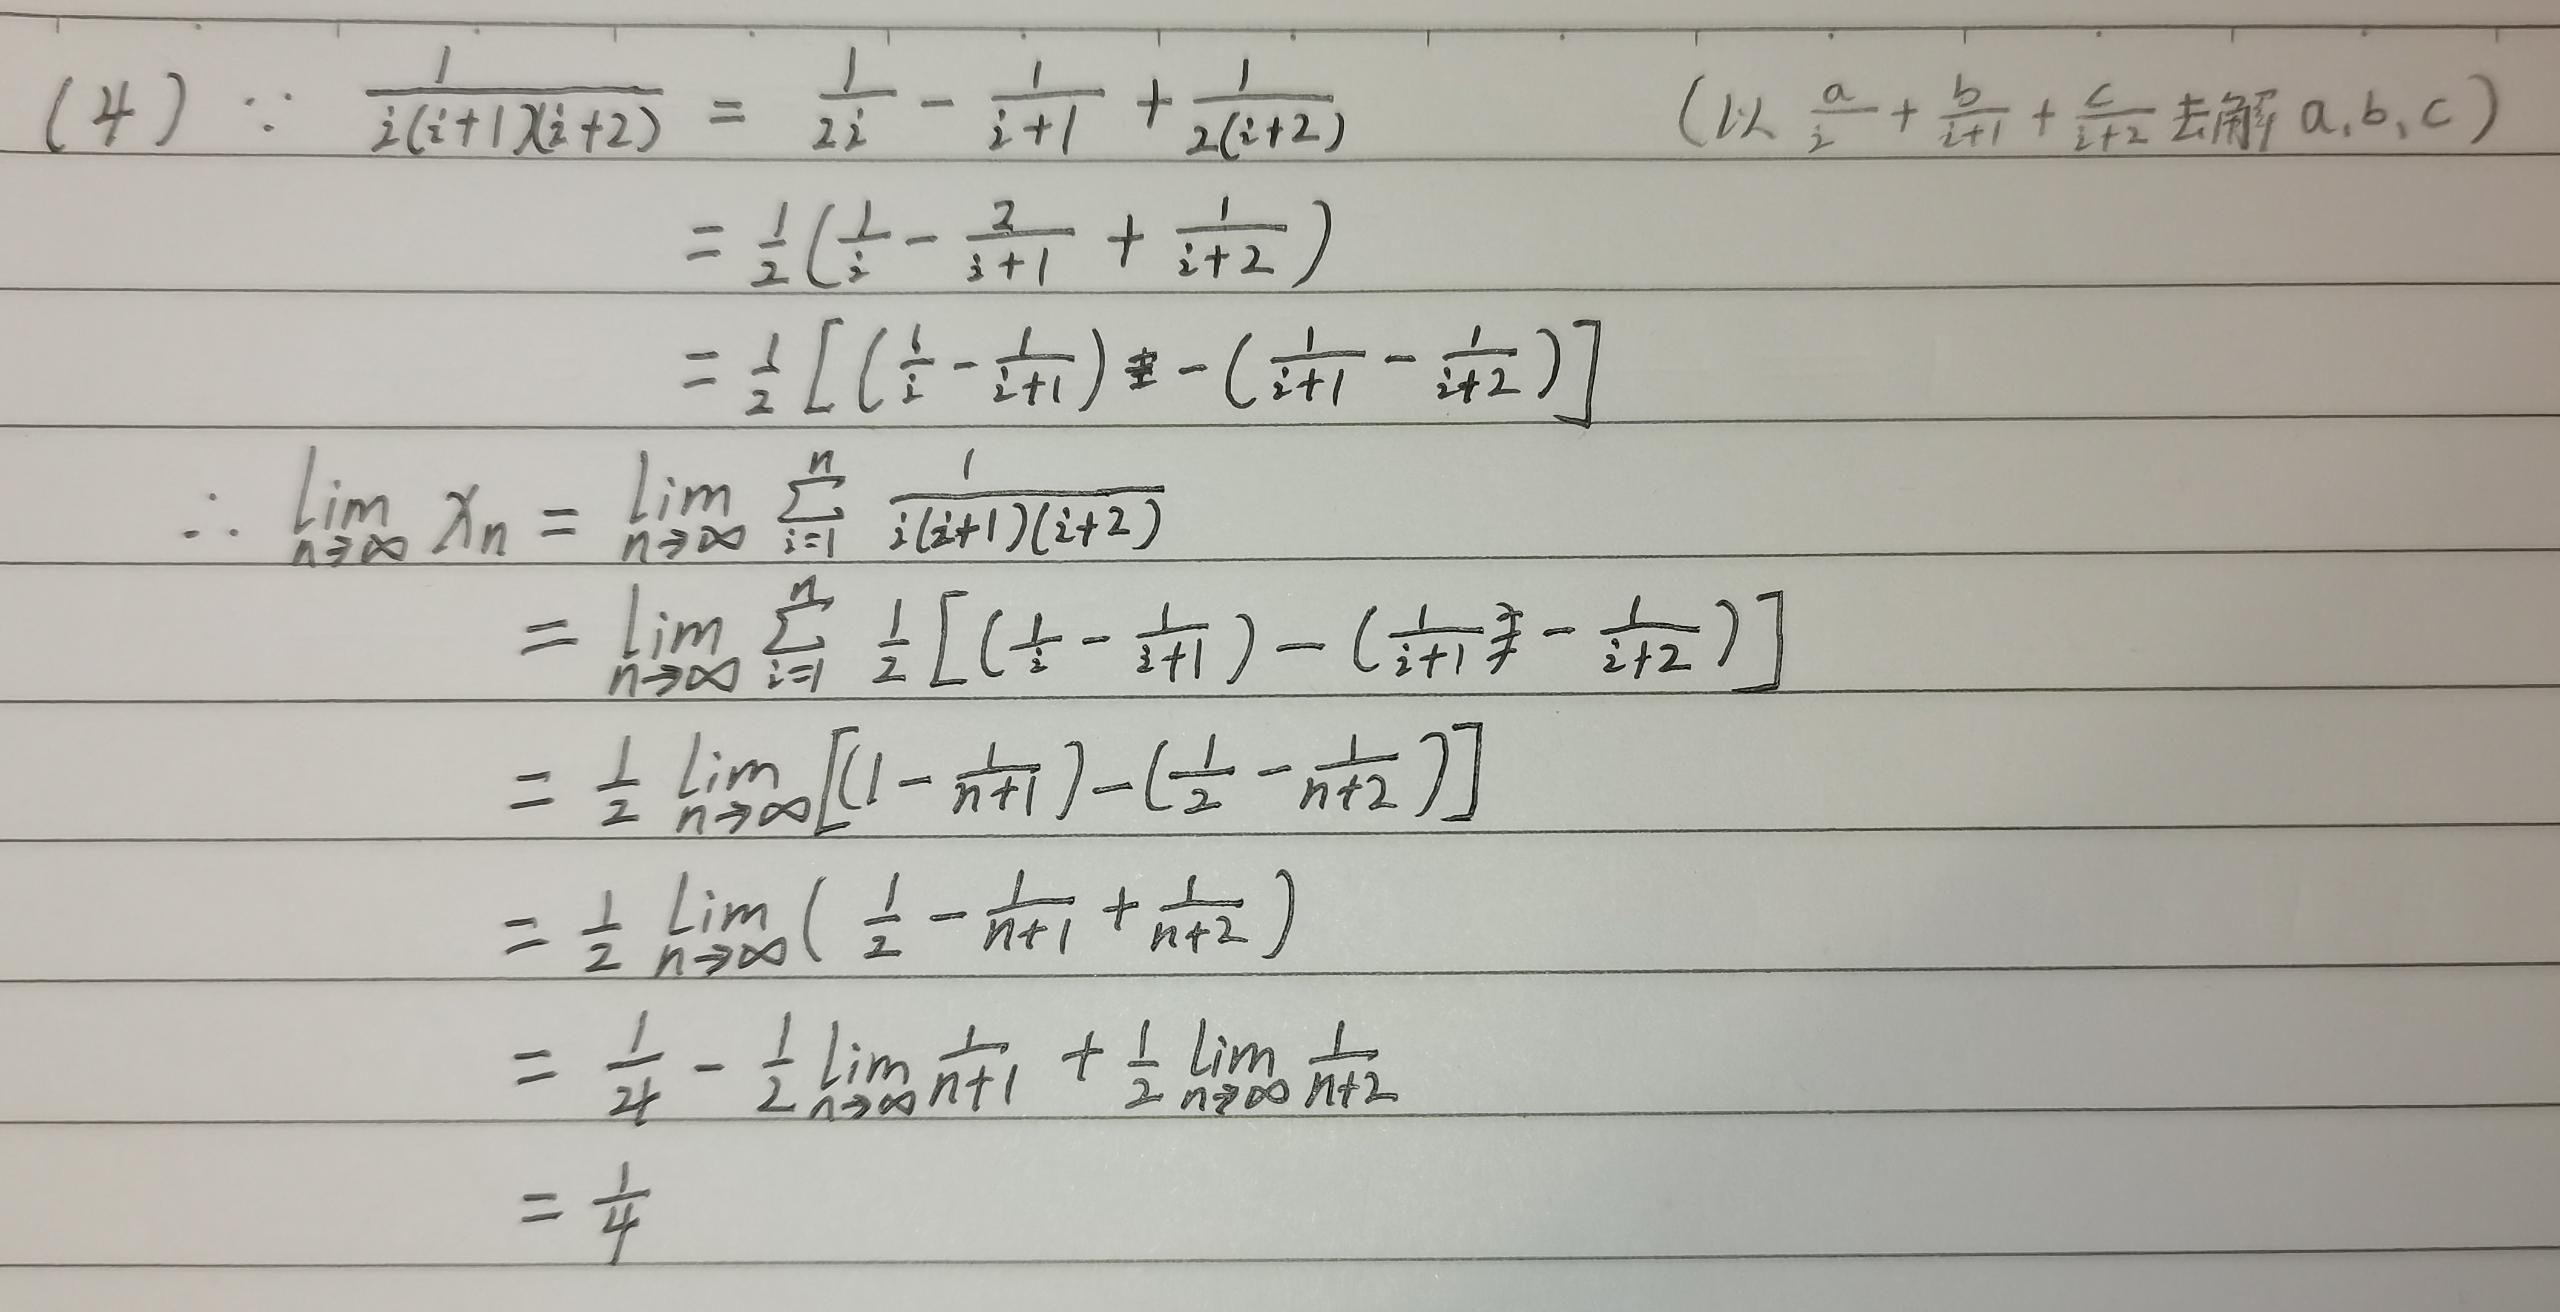 (4) ∵ 1/(i(i+1)(i+2)) = 1/(2i) - 1/(i+1) + 1/(2(i+2)) (以 a/i + b/(i+1) + c/(i+2) 去解 a,b,c)
= 1/2 (1/i - 2/(i+1) + 1/(i+2))
= 1/2 [(1/i - 1/(i+1)) - (1/(i+1) - 1/(i+2))]
∴ lim_{n→∞} x_n = lim_{n→∞} ∑_{i=1}^{n} 1/(i(i+1)(i+2))
= lim_{n→∞} ∑_{i=1}^{n} 1/2 [(1/i - 1/(i+1)) - (1/(i+1) - 1/(i+2))]
= 1/2 lim_{n→∞} [(1 - 1/(n+1)) - (1/2 - 1/(n+2))]
= 1/2 lim_{n→∞} (1/2 - 1/(n+1) + 1/(n+2))
= 1/4 - 1/2 lim_{n→∞} 1/(n+1) + 1/2 lim_{n→∞} 1/(n+2)
= 1/4